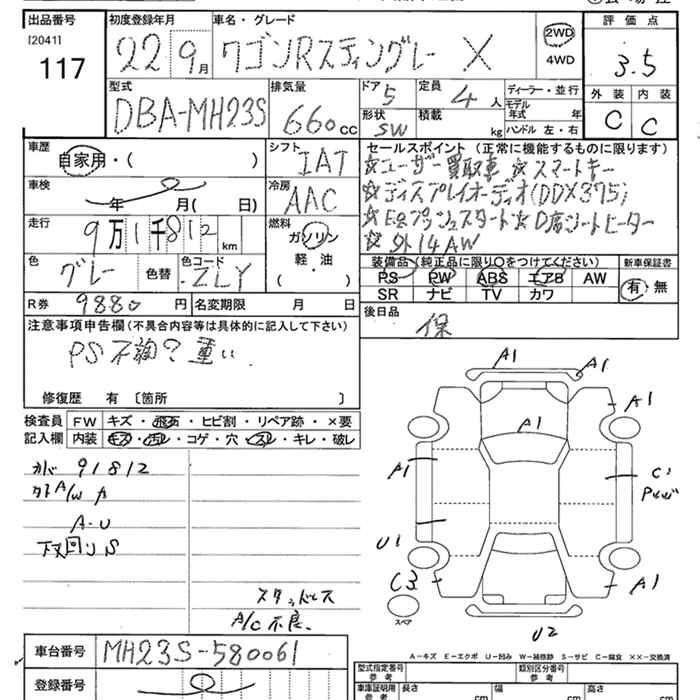 出品番号
[2041]
117
初度登録年月
22 9月
車名・グレード
ワゴンRスティングレー X
2WD
4WD
評価点
3.5
外装 内装
C C
型式
DBA-MH23S
排気量
660cc
ドア
5
形状
SW
定員
4人
積載
kg
ディーラー・並行
モデル年式 年
ハンドル 左・右
車歴
自家用・( )
シフト
IAT
車検
年 月( 日)
冷房
AAC
走行
9万1千812km
燃料
ガソリン
軽・油
( )
色
グレー
色替
色コード
ZLY
R券 9880円
名変期限 月 日
セールスポイント (正常に機能するものに限ります)
☆ユーザー買取車 ☆スマートキー
☆ディスプレイオーディオ(DDX375)
☆E.gプッシュスタート☆D席シートヒーター
☆外14AW
装備品 (純正品に限り○をつけてください)
PS PW ABS エアB AW
SR ナビ TV カワ
新車保証書
有・無
後日品
保
注意事項申告欄(不具合内容等は具体的に記入して下さい)
PS不調?重い
修復歴 有〔箇所 〕
検査員記入欄
FW キズ・飛石・ヒビ割・リペア跡・×要
内装 キズ・汚レ・コゲ・穴・スレ・キレ・破レ
91812
A/W
A-U
下回りS
スタッドレス
A/C不良.
A1
A1
A1
A1
A1
C1
U1
C3
A1
スペア
U2
A−キズ E−エクボ U−凹み W−補修跡 S−サビ C−腐食 ××−交換済
車台番号 MH23S-580061
登録番号
型式指定番号 参考
類別区分番号 参考
車庫証明用 参考
長さ cm
幅 cm
高さ cm